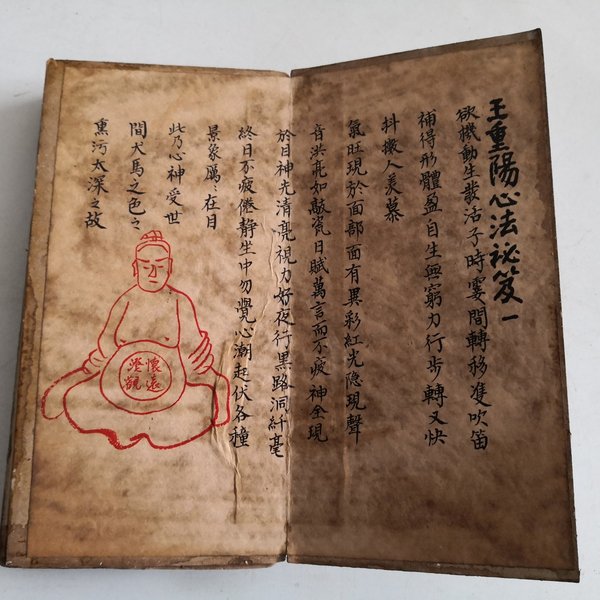 王重陽心法祕笈一
欲機動生發活子時霎間轉移隻吹笛
補得形體盈自生無窮力行步轉又快
抖擻人羡慕
氣旺現於面部面有異彩紅光隐現聲
音洪亮如敲瓷日賦萬言而不疲神全現
於目神光清亮視力好夜行黑路洞纤毫
終日不疲倦静坐中勿覺心潮起伏各種
景象厲々在目
此乃心神受世
間犬馬之色之
熏污太深之故
懷遠
澄觀